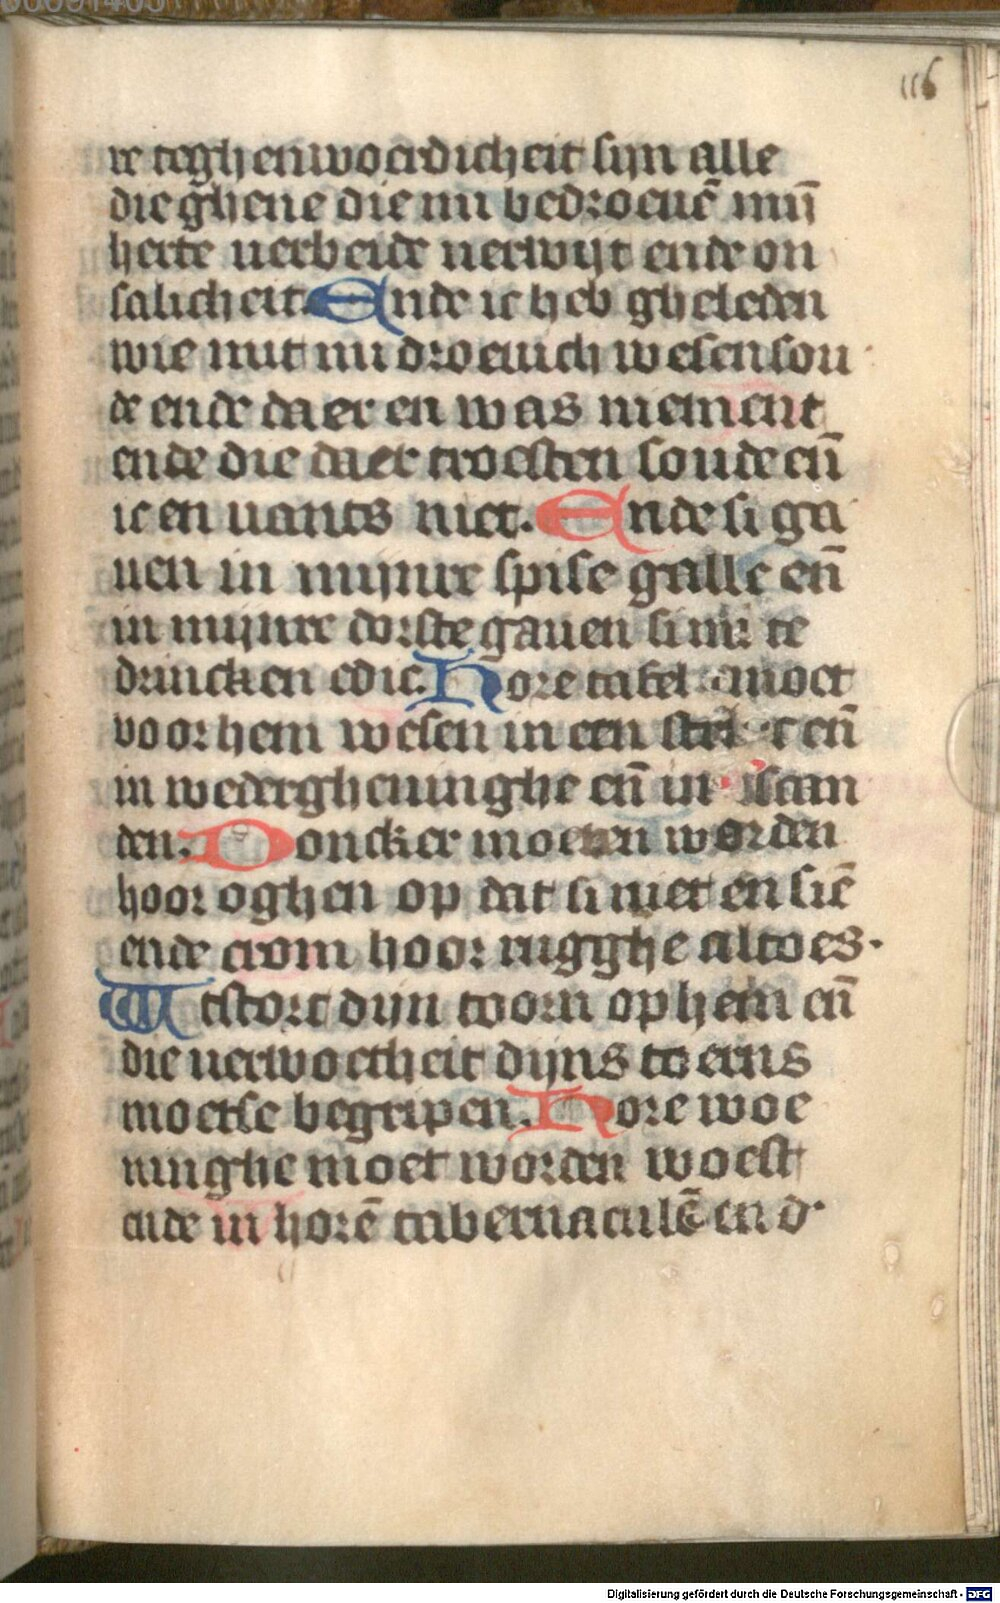 116
re teghenwoerdicheit sijn alle
die ghene die mi bedroeuē mijn̄
herte uerbeide uerwijt ende on
salicheit. Ende ic heb gheleden
wie mit mi droeuich wesen sou
de ende daer en was niement
ende die daer troesten soude en̄
ic en uants niet. Ende si ga
uen in mijnre spise galle en̄
in mijnre dorste gauen si mi te
drincken edic. Hore tafel moet
voor hem wesen in een en̄
in wedergheuinghe en̄ in scan
den. Doncker moeten worden
hoor oghen op dat si niet en siē
ende crom hoor rugghe altoes.
Wtstort dijn toorn op hem en̄
die uerwoetheit dijns toerns
moetse begripen. Hore woe
ninghe moet worden woest
ende in horē tabernaculē en d
Digitalisierung gefördert durch die Deutsche Forschungsgemeinschaft - DFG